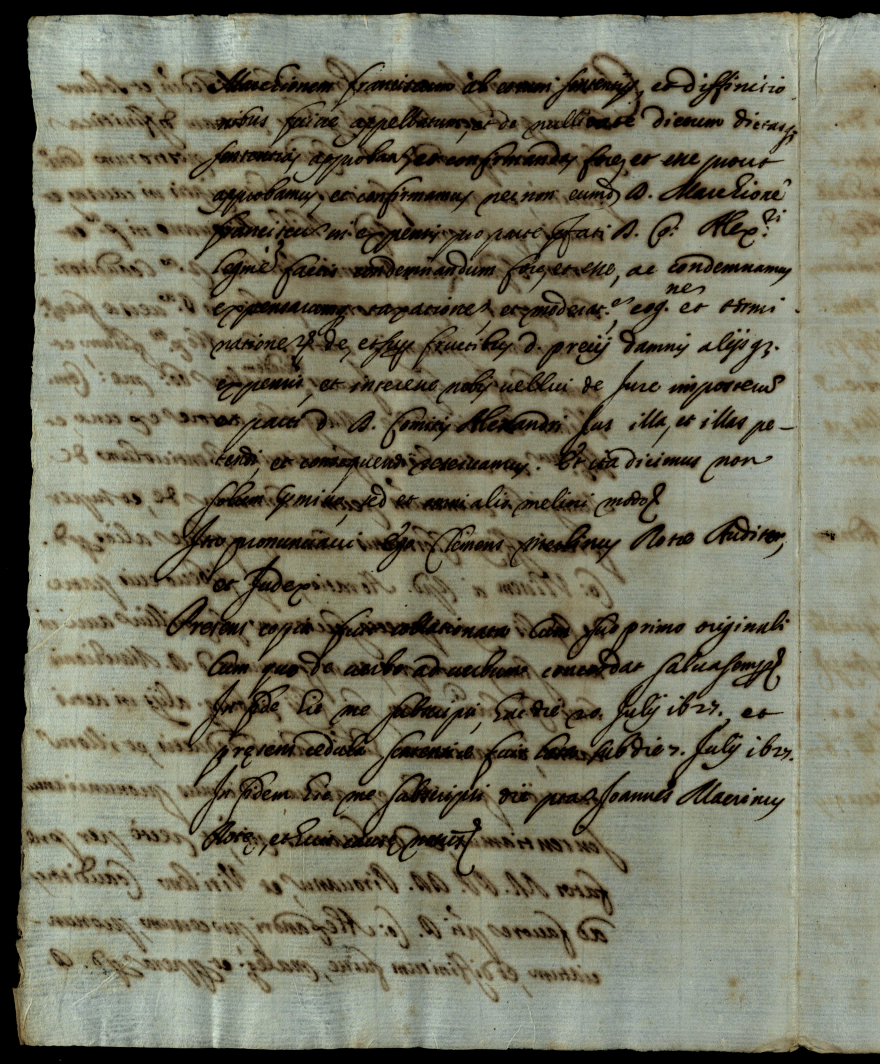 Marchionem Franciscum ab eorum sententijs, et diffinitio
nibus fuisse appellatum, et de nullitate dictum dictasq;
sententias approbandas, et confirmandas fore, et esse prout
approbamus, et confirmamus nec non eumd. D. Marchionē
Franciscū in expensis pro parte pfati D. Co: Alexri
legmē factis condemnandum fore, et esse, ac condemnamus
expensarumq; taxationes, et moderat.es eog.nes et termi
natione de, et sup fructibus d. pretij damnis alijsq;
expensis, et interesse nobis uel cui de Jure imposterū
parti d. D. Comitis Alexandri Jus illa, et illas pe-
tendi, et consequendi reseruamus. Et ita dicimus non
solum omni, sed et omni alio meliori modo
Ita pronunciaui Ego Clemens Rotæ Auditor,
et Judex
Presens copia fuit collationata cum suo primo originali
cum quo de uerbo ad uerbum concordat salua semp
In fide hic me subscripsi, hac die 20. Julij 1627. et
presens cedula sententiæ fuit lata sub die 7. Julij 1627.
In fidem hic me subscripsi die pta Joannes Macrinus
Rotæ, et huius causæ notar